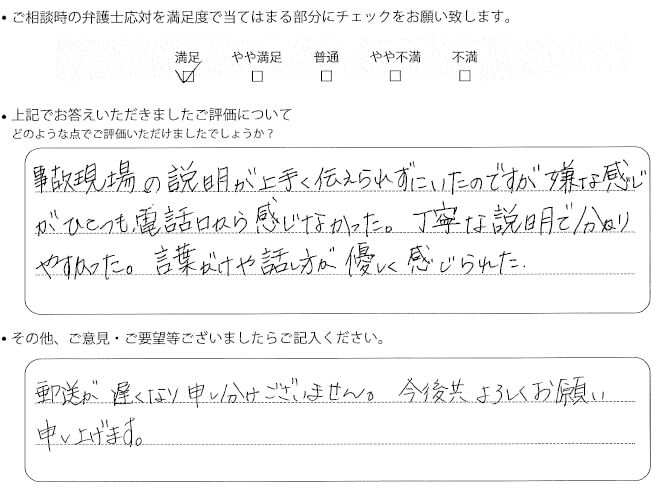 • ご相談時の弁護士応対を満足度で当てはまる部分にチェックをお願い致します。
満足 やや満足 普通 やや不満 不満
☑ ☐ ☐ ☐ ☐
• 上記でお答えいただきましたご評価について
どのような点でご評価いただけましたでしょうか？
事故現場の説明が上手く伝えられずにいたのですが嫌な感じ
がひとつも、電話口から感じなかった。丁寧な説明で分かり
やすかった。言葉がけや話し方が優しく感じられた。
• その他、ご意見・ご要望等ございましたらご記入ください。
郵送が遅くなり申し分けございません。今後共よろしくお願い
申し上げます。